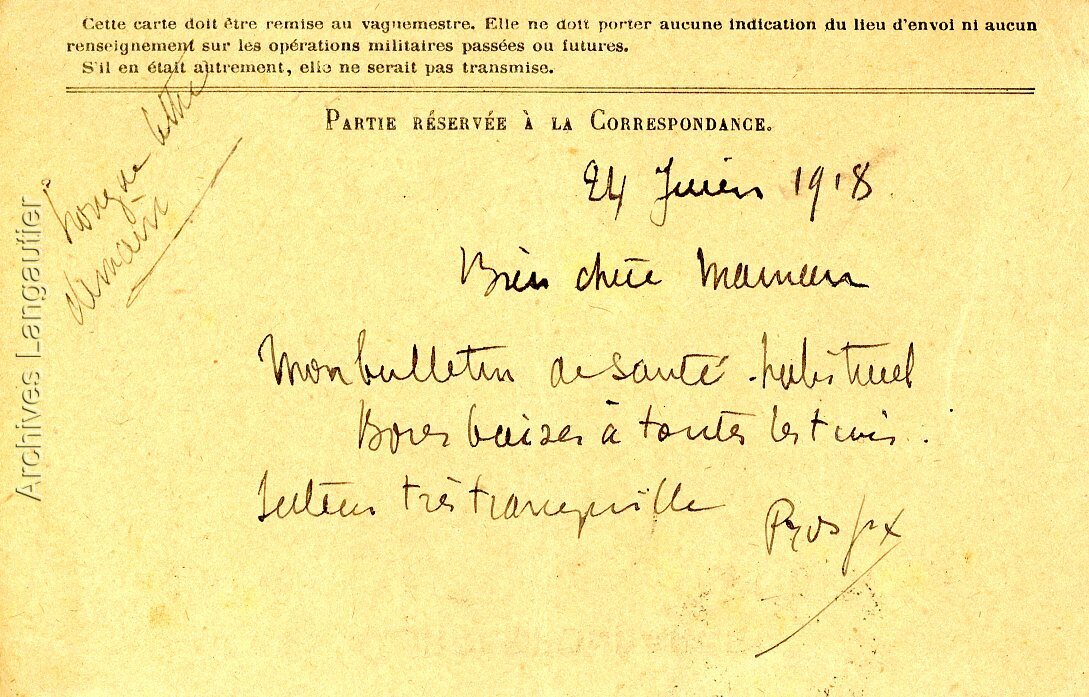 Cette carte doit être remise au vaguemestre. Elle ne doit porter aucune indication du lieu d'envoi ni aucun
renseignement sur les opérations militaires passées ou futures.
S'il en était autrement, elle ne serait pas transmise.
PARTIE RÉSERVÉE À LA CORRESPONDANCE.
longue lettre
demain
24 Juin 1918
Bien chère Maman
Mon bulletin de santé habituel
Bons baisers à toutes les trois.
Secteur très tranquille
Prosper
Archives Langautier